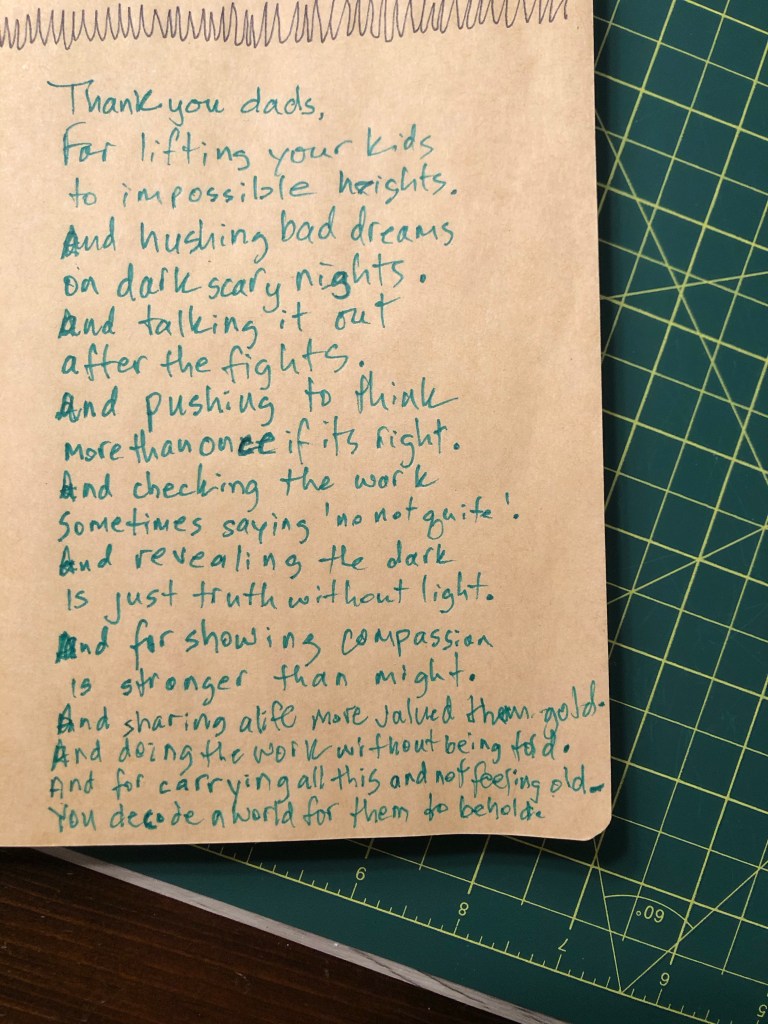 Thank you dads,
for lifting your kids
to impossible heights.
And hushing bad dreams
on dark scary nights.
And talking it out
after the fights.
And pushing to think
more than once if its right.
And checking the work
Sometimes saying 'no not quite'.
And revealing the dark
is just truth without light.
And for showing compassion
is stronger than might.
And sharing a life more valued than gold.
And doing the work without being told.
And for carrying all this and not feeling old.
You decode a world for them to behold.
9
8
7
6
5
60°